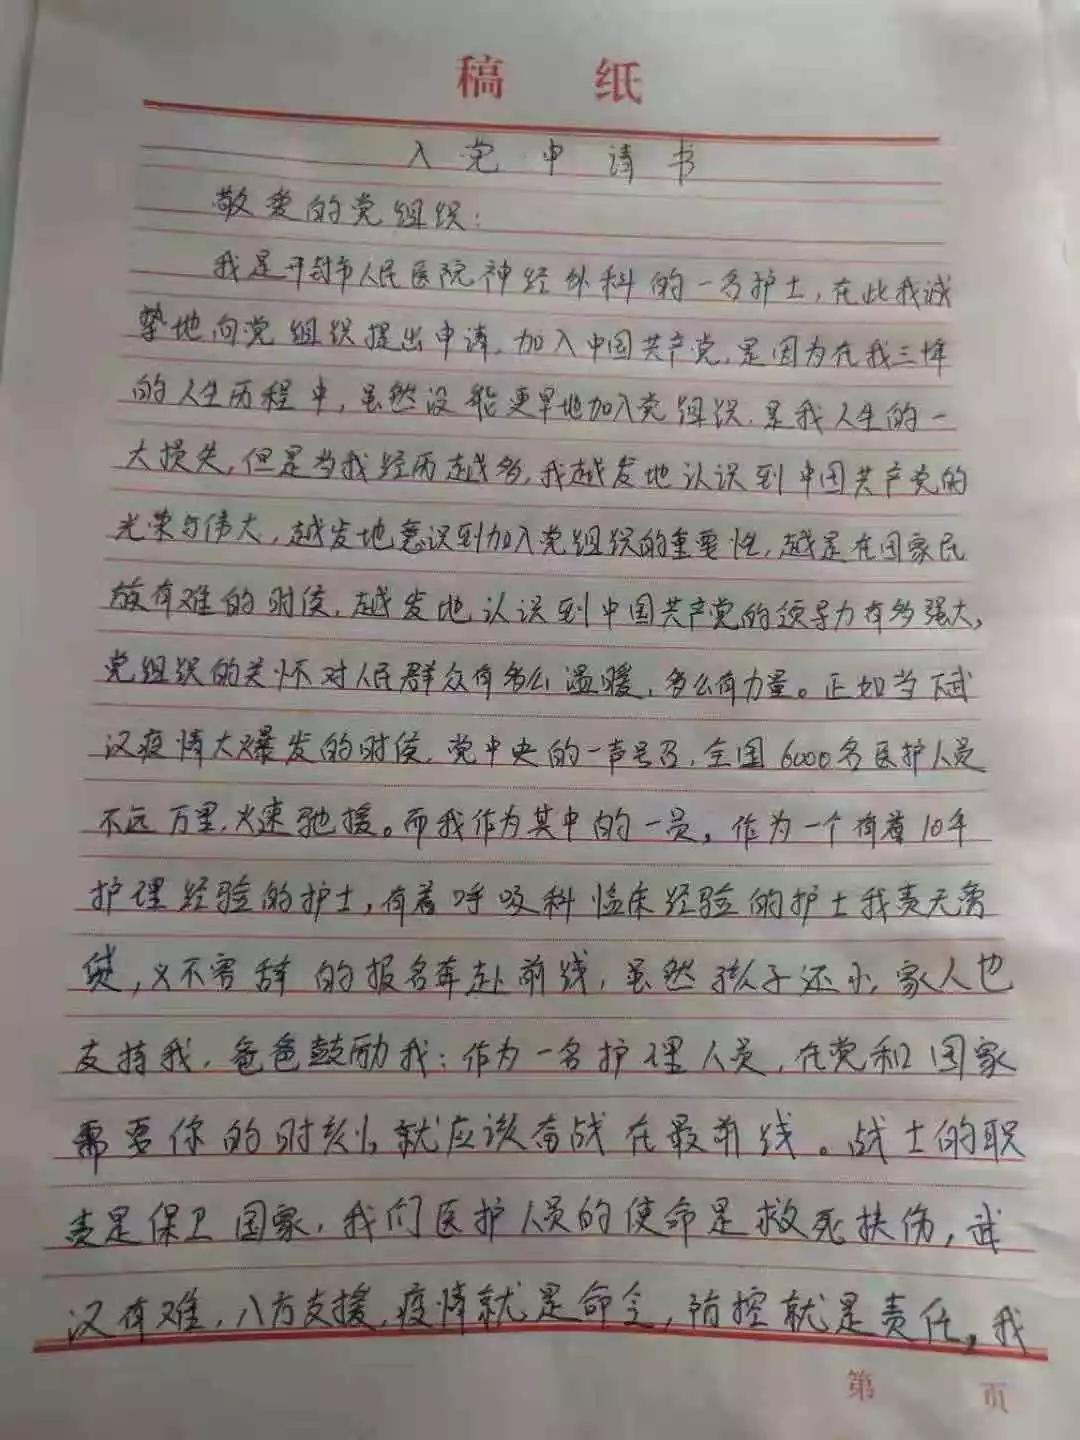 稿 纸
入党申请书
敬爱的党组织：
我是开封市人民医院神经外科的一名护士，在此我诚
挚地向党组织提出申请，加入中国共产党，是因为在我三十年
的人生历程中，虽然没能更早地加入党组织，是我人生的一
大损失，但是当我经历越多，我越发地认识到中国共产党的
光荣与伟大，越发地意识到加入党组织的重要性，越是在国家民
族有难的时侯，越发地认识到中国共产党的领导力有多强大，
党组织的关怀对人民群众有多么温暖，多么有力量。正如当下武
汉疫情大爆发的时侯，党中央的一声号召，全国6000名医护人员
不远万里，火速驰援。而我作为其中的一员，作为一个有着10年
护理经验的护士，有着呼吸科临床经验的护士我责无旁
贷，义不容辞的报名奔赴前线，虽然孩子还小，家人也
支持我，爸爸鼓励我：作为一名护理人员，在党和国家
需要你的时刻，就应该奋战在最前线。战士的职
责是保卫国家，我们医护人员的使命是救死扶伤，武
汉有难，八方支援，疫情就是命令，防控就是责任，我
第 页